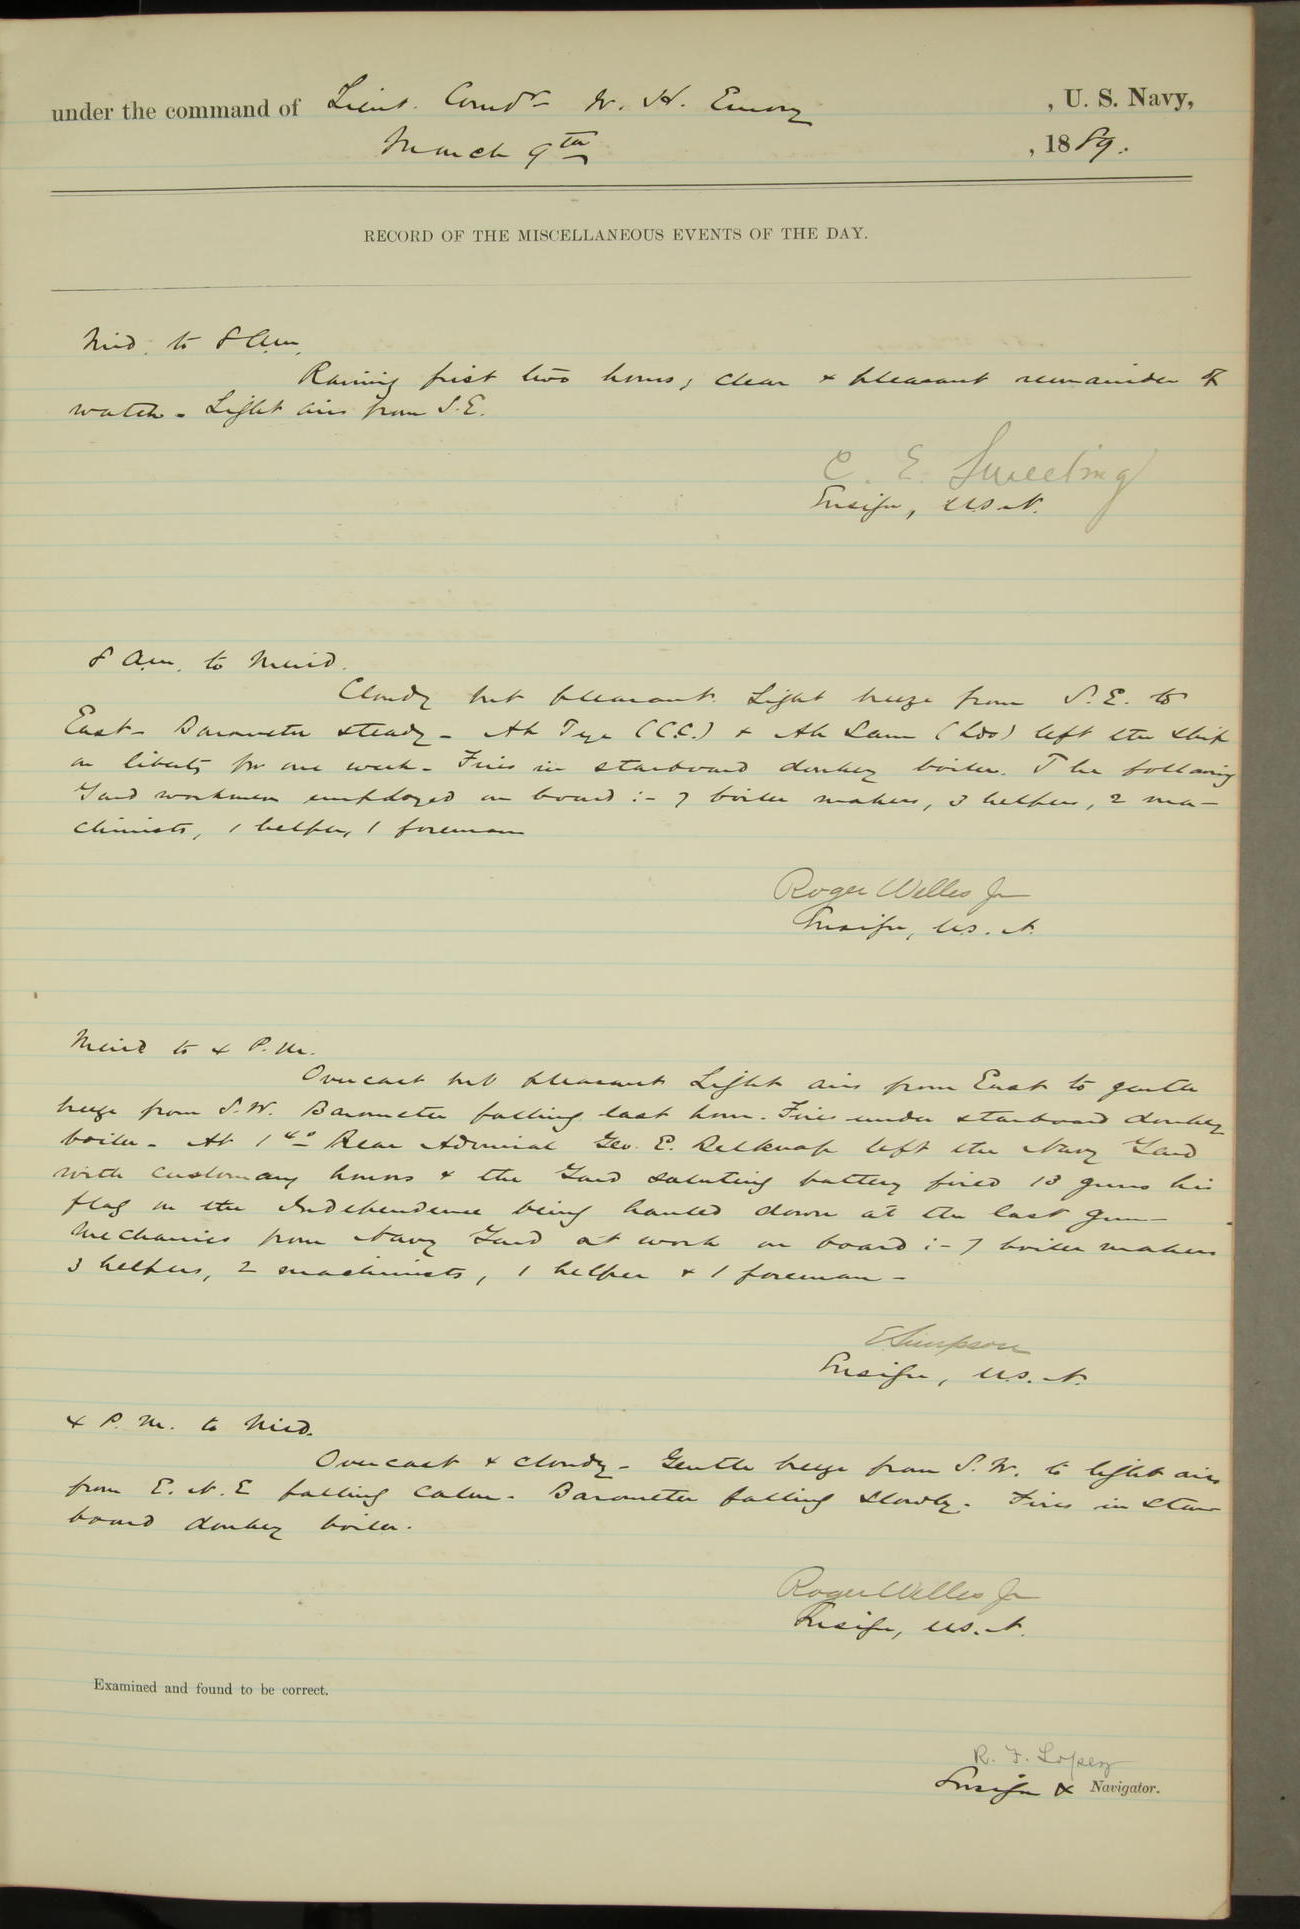 under the command of Lieut. Comdr W. H. Emory, U. S. Navy,
March 9th, 1889.
RECORD OF THE MISCELLANEOUS EVENTS OF THE DAY.
Mid. to 8 A.m.
Raining first two hours, clear & pleasant remainder of
watch - Light airs from S.E.
C. E. Sweeting
Ensign, U.S.N.
8 A.m. to Merid.
Cloudy but pleasant. Light breeze from S.E. to
East - Barometer steady - Ah Tye (C.C.) & Ah Sam (Lds) left the ship
on liberty for one week - Fires in starboard donkey boiler. The following
Yard workmen employed on board :- 7 boiler makers, 3 helpers, 2 ma-
chinists, 1 helper, 1 foreman
Roger Welles Jr
Ensign, U.S.N.
Merid to 4 P.M.
Overcast but pleasant Light airs from East to gentle
breeze from S.W. Barometer falling last hour. Fires under starboard donkey
boiler - At 1 40 Rear Admiral Geo. E. Belknap left the Navy Yard
with customary honors & the Yard saluting battery fired 13 guns his
flag on the Independence being hauled down at the last gun -
Mechanics from Navy Yard at work on board :- 7 boiler makers
3 helpers, 2 machinists, 1 helper & 1 foreman -
E Simpson
Ensign, U.S.N.
4 P.M. to Mid.
Overcast & cloudy - Gentle breeze from S.W. to light airs
from E.N.E falling calm - Barometer falling slowly. Fires in star
board donkey boiler.
Roger Welles Jr
Ensign, U.S.N.
Examined and found to be correct.
R. F. Lopez
Ensign & Navigator.